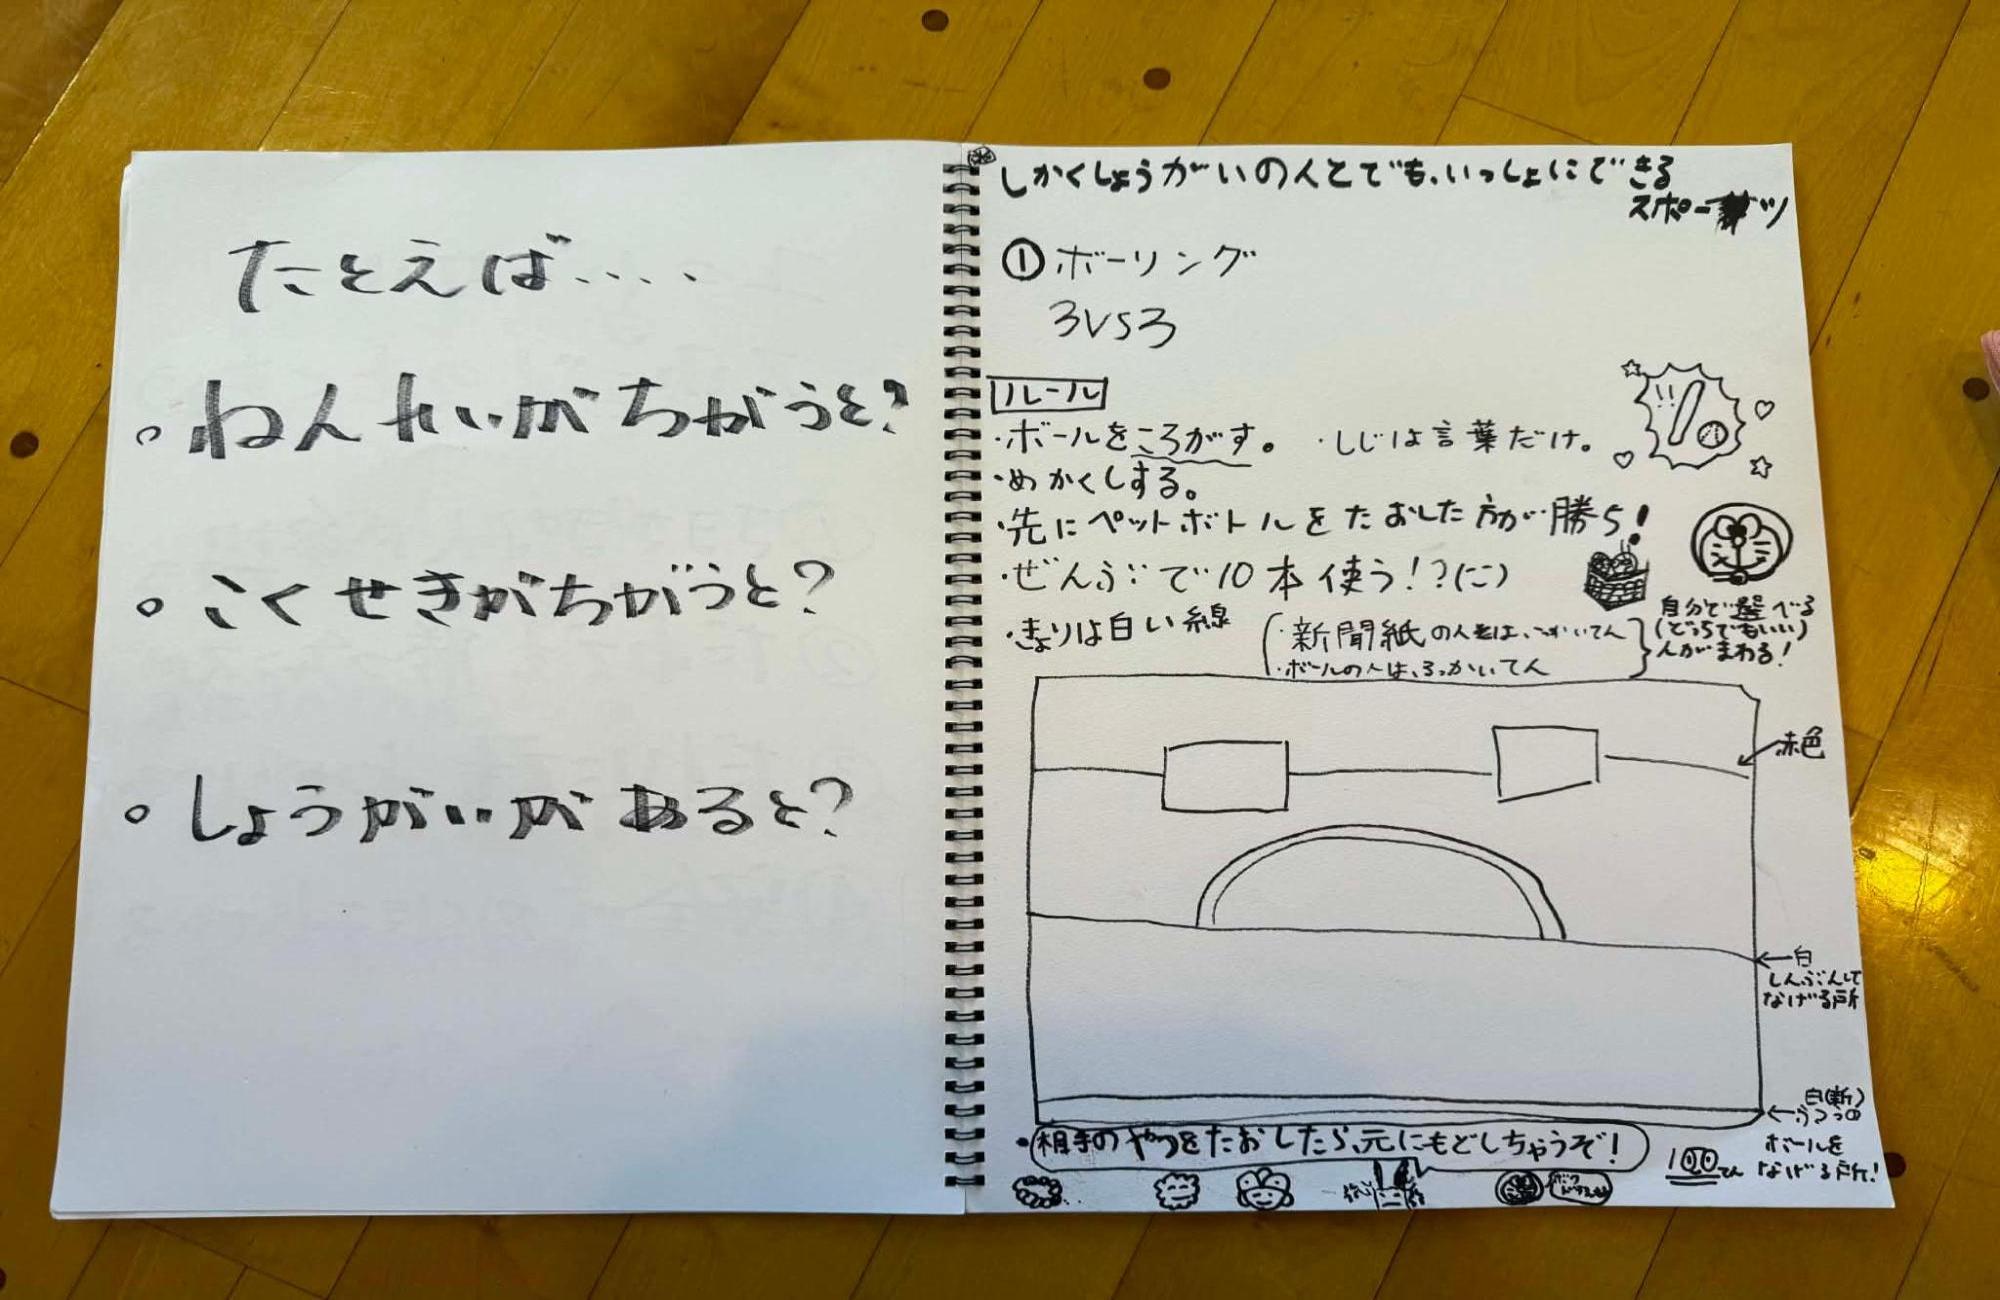 たとえば....
。ねんれいがちがうと?
。こくせきがちがうと?
。しょうがいがあると?
しかくしょうがいの人とでも、いっしょにできる
スポーツ
①ボーリング
3VS3
ルール
・ボールをころがす。 ・しじは言葉だけ。
・めかくしする。
・先にペットボトルをたおした方が勝ち!
・ぜんぶで10本使う!?(に)
・きょりは白い線
・新聞紙の人は、
・ボールの人は、
自分で選べる
(どっちでもいい)
人がまわる!
赤色
←白
しんぶんして
なげる所
白(新)
ボールを
なげる所!
・相手のやつをたおしたら、元にもどしちゃうぞ!
100てん